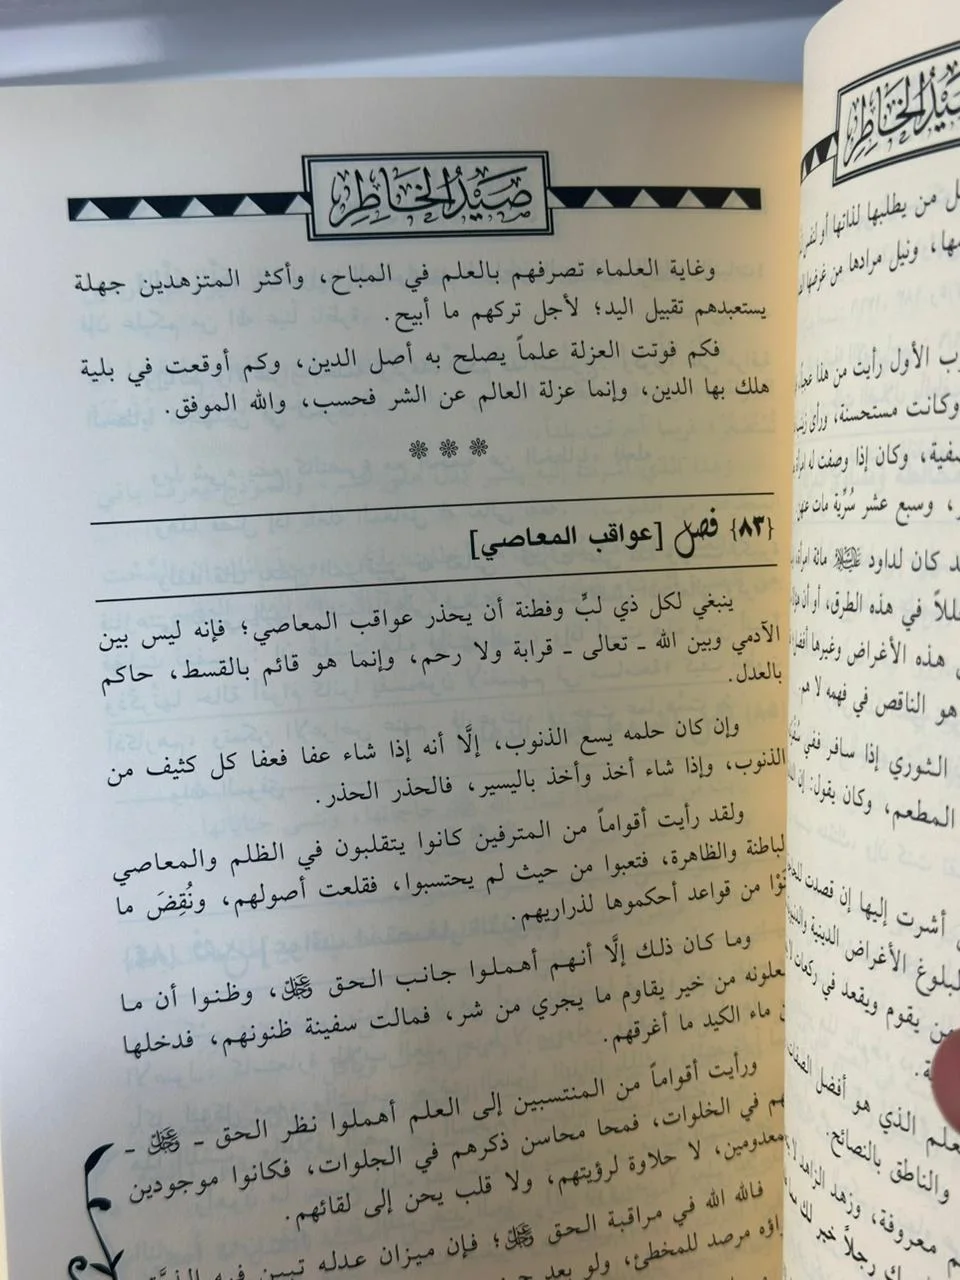 صَيْدُ الخَاطِرِ
وغاية العلماء تصرفهم بالعلم في المباح، وأكثر المتزهدين جهلة
يستعبدهم تقبيل اليد؛ لأجل تركهم ما أبيح.
فكم فوتت العزلة علماً يصلح به أصل الدين، وكم أوقعت في بلية
هلك بها الدين، وإنما عزلة العالم عن الشر فحسب، والله الموفق.
{٨٣} فصل [عواقب المعاصي]
ينبغي لكل ذي لبٍّ وفطنة أن يحذر عواقب المعاصي؛ فإنه ليس بين
الآدمي وبين الله ـ تعالى ـ قرابة ولا رحم، وإنما هو قائم بالقسط، حاكم
بالعدل.
وإن كان حلمه يسع الذنوب، إلَّا أنه إذا شاء عفا فعفا كل كثيف من
الذنوب، وإذا شاء أخذ وأخذ باليسير، فالحذر الحذر.
ولقد رأيت أقواماً من المترفين كانوا يتقلبون في الظلم والمعاصي
الباطنة والظاهرة، فتعبوا من حيث لم يحتسبوا، فقلعت أصولهم، ونُقِضَ ما
من قواعد أحكموها لذراريهم.
وما كان ذلك إلَّا أنهم أهملوا جانب الحق ﷿، وظنوا أن ما
من خير يقاوم ما يجري من شر، فمالت سفينة ظنونهم، فدخلها
ماء الكيد ما أغرقهم.
ورأيت أقواماً من المنتسبين إلى العلم أهملوا نظر الحق ـ ﷿ ـ
في الخلوات، فمحا محاسن ذكرهم في الجلوات، فكانوا موجودين
لا حلاوة لرؤيتهم، ولا قلب يحن إلى لقائهم.
فالله الله في مراقبة الحق ﷿؛ فإن ميزان عدله تبين فيه
مرصد للمخطئ، ولو بعد
صَيْدُ الخَاطِرِ
من يطلبها لذاتها أو
ونيل مرادها من غرضها
الأول رأيت من هذا
وكانت مستحسنة، ورأى
وكان إذا وصفت له
وسبع عشر سُرِّيَة مات
كان لداود ﷺ مائة
في هذه الطرق، أو أن
هذه الأغراض وغيرها
هو الناقص في فهمه لا هم.
الثوري إذا سافر ففي
المطعم، وكان يقول: إن
أشرت إليها إن قصدت
لبلوغ الأغراض الدينية
من يقوم ويقعد في ركعات
الذي هو أفضل الصفات
والناطق بالنصائح.
معروفة، وزهد الزاهد لا
رجلاً خير لك